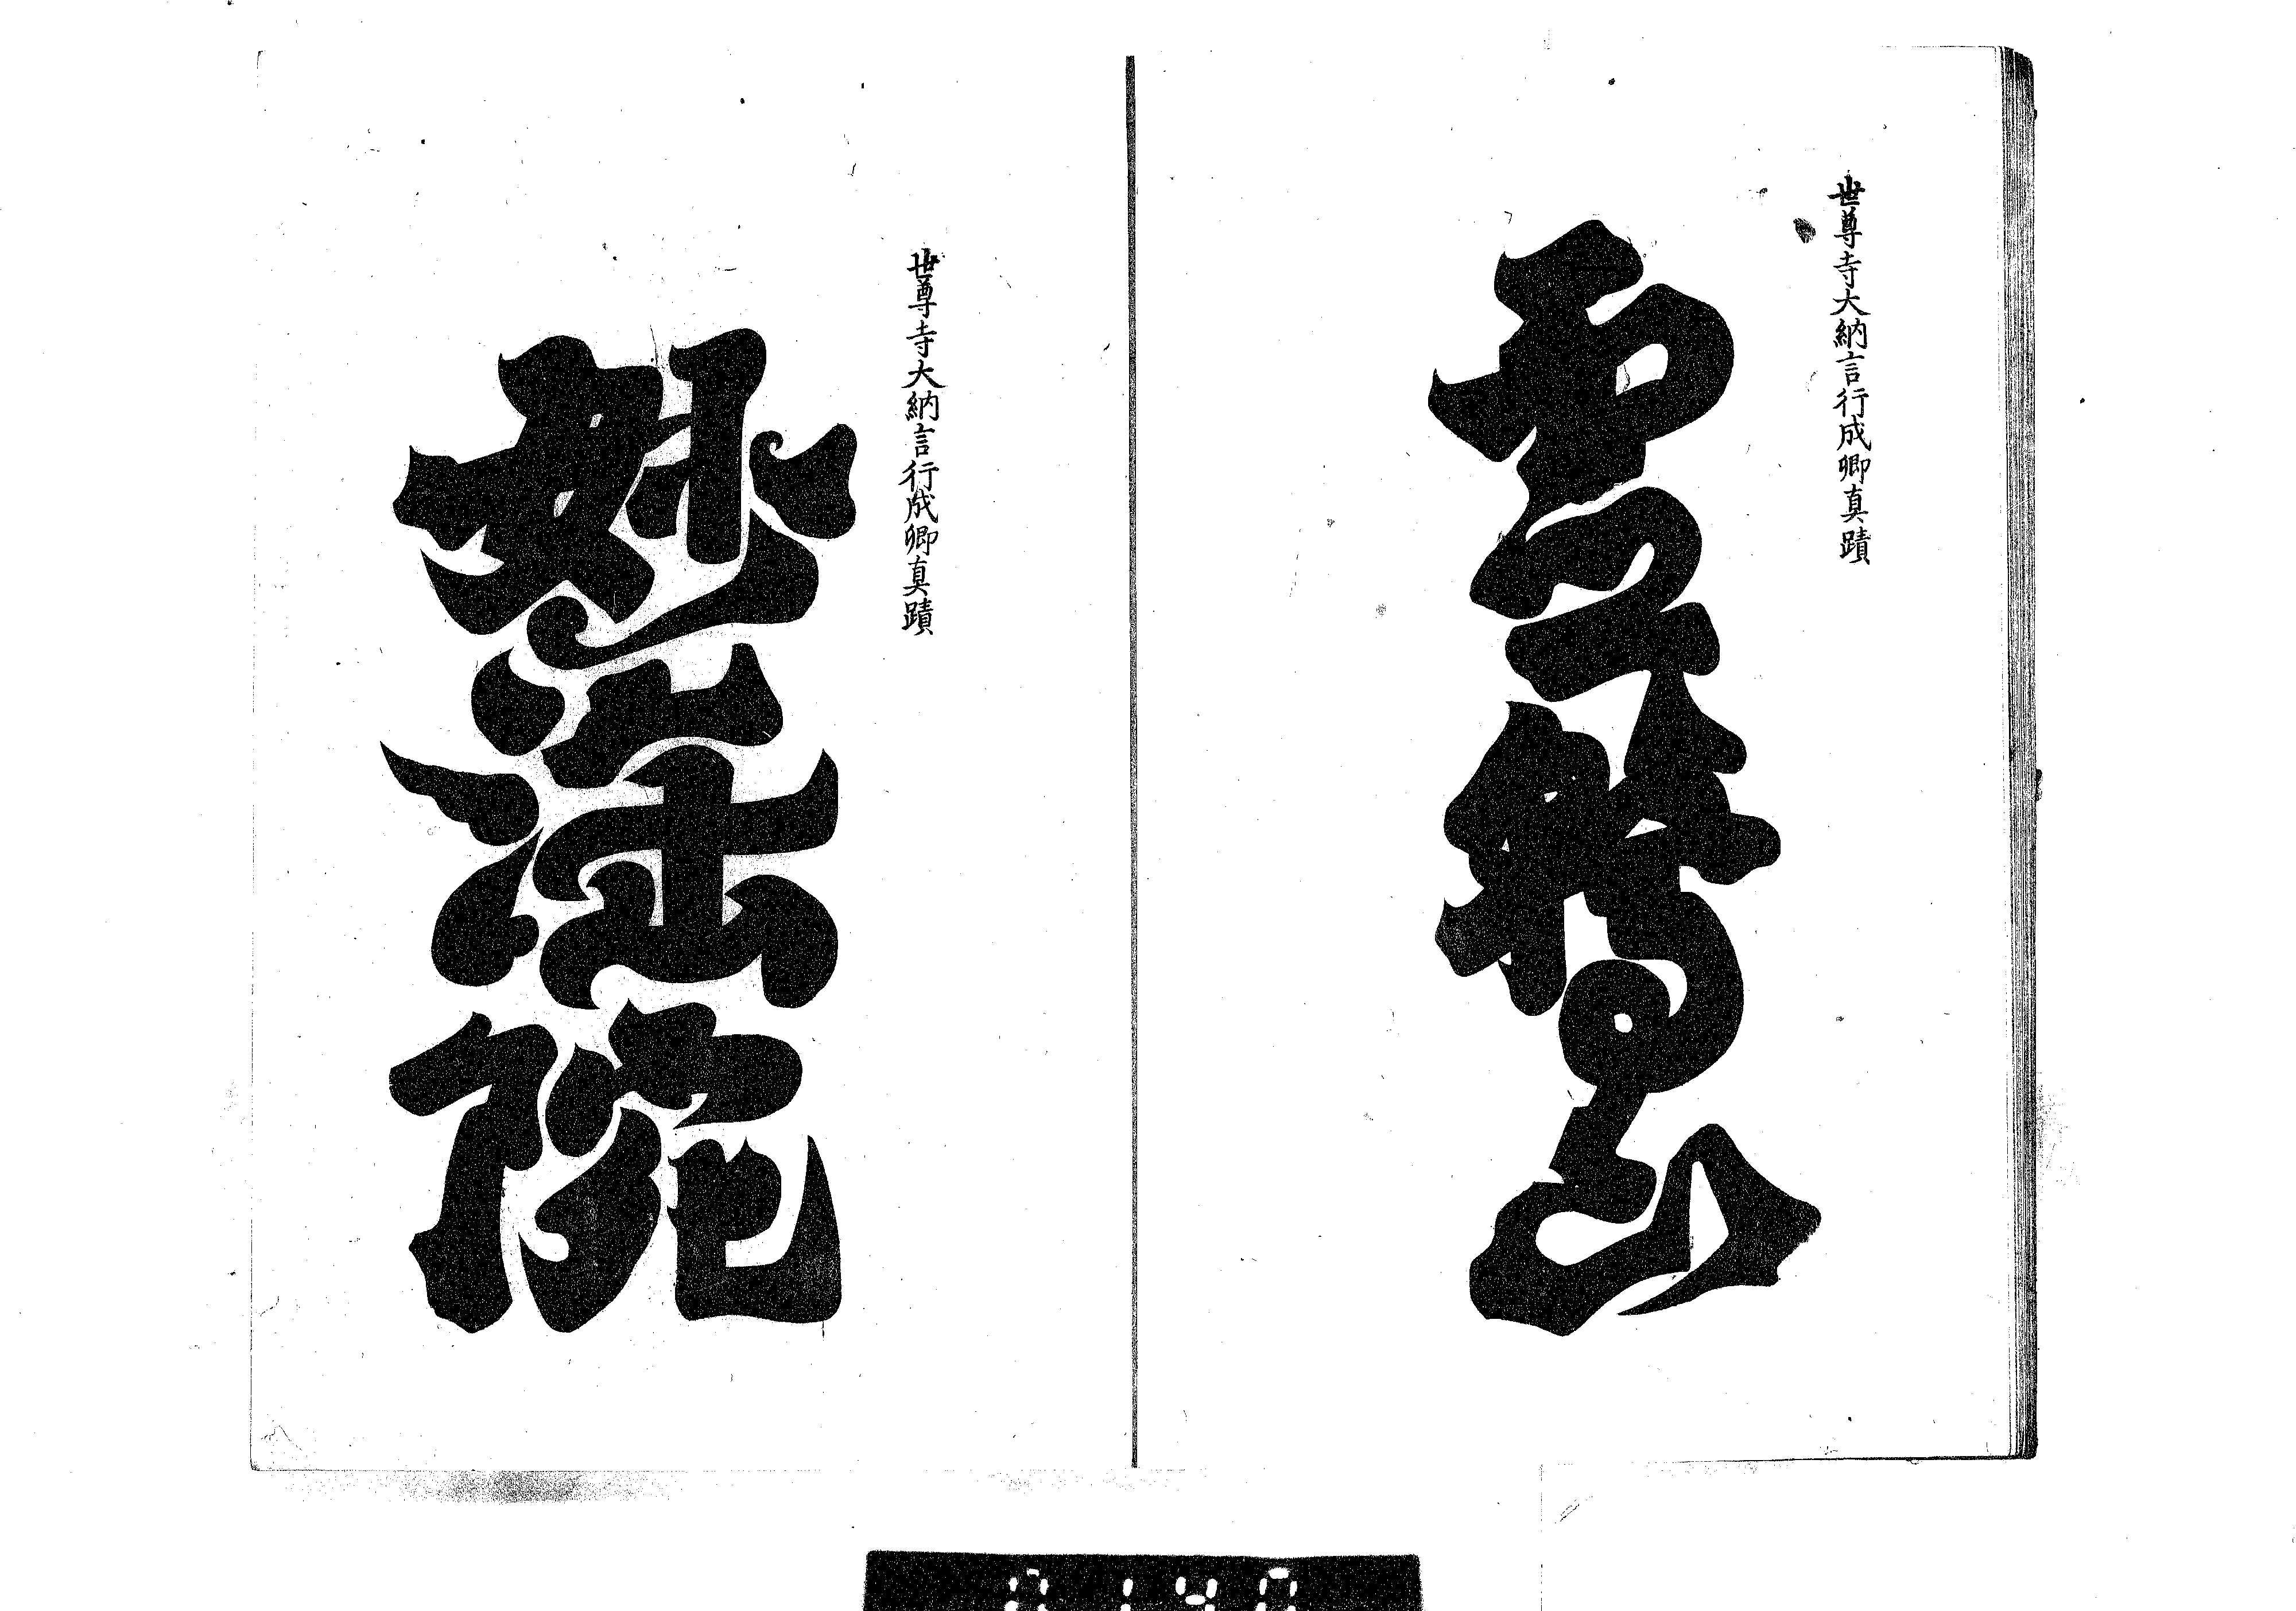 世尊寺大納言行成卿真蹟
霊鷲山
世尊寺大納言行成卿真蹟
妙法院